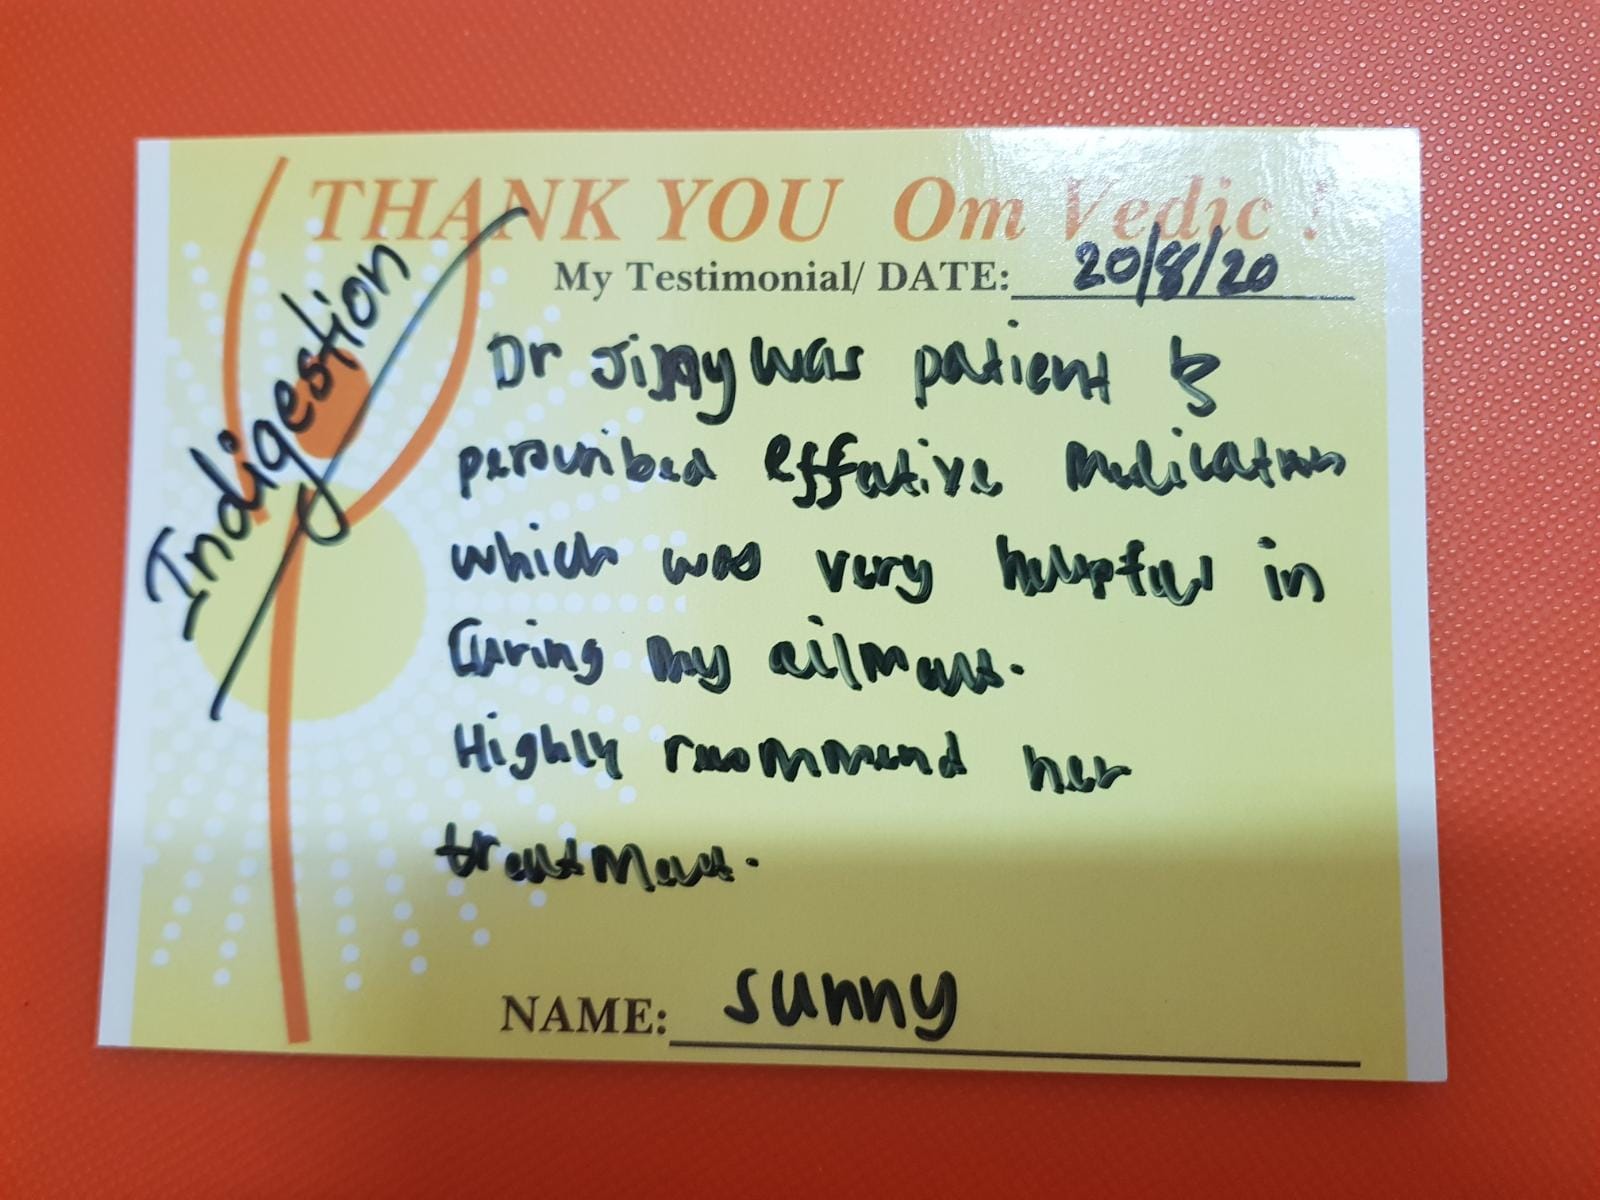 THANK YOU Om Vedic !
My Testimonial/ DATE: 20/8/20
Indigestion
Dr was patient &
perscribed effective medication
which was very helpful in
Curing my ailment.
Highly recommend her
treatment.
NAME: Sunny